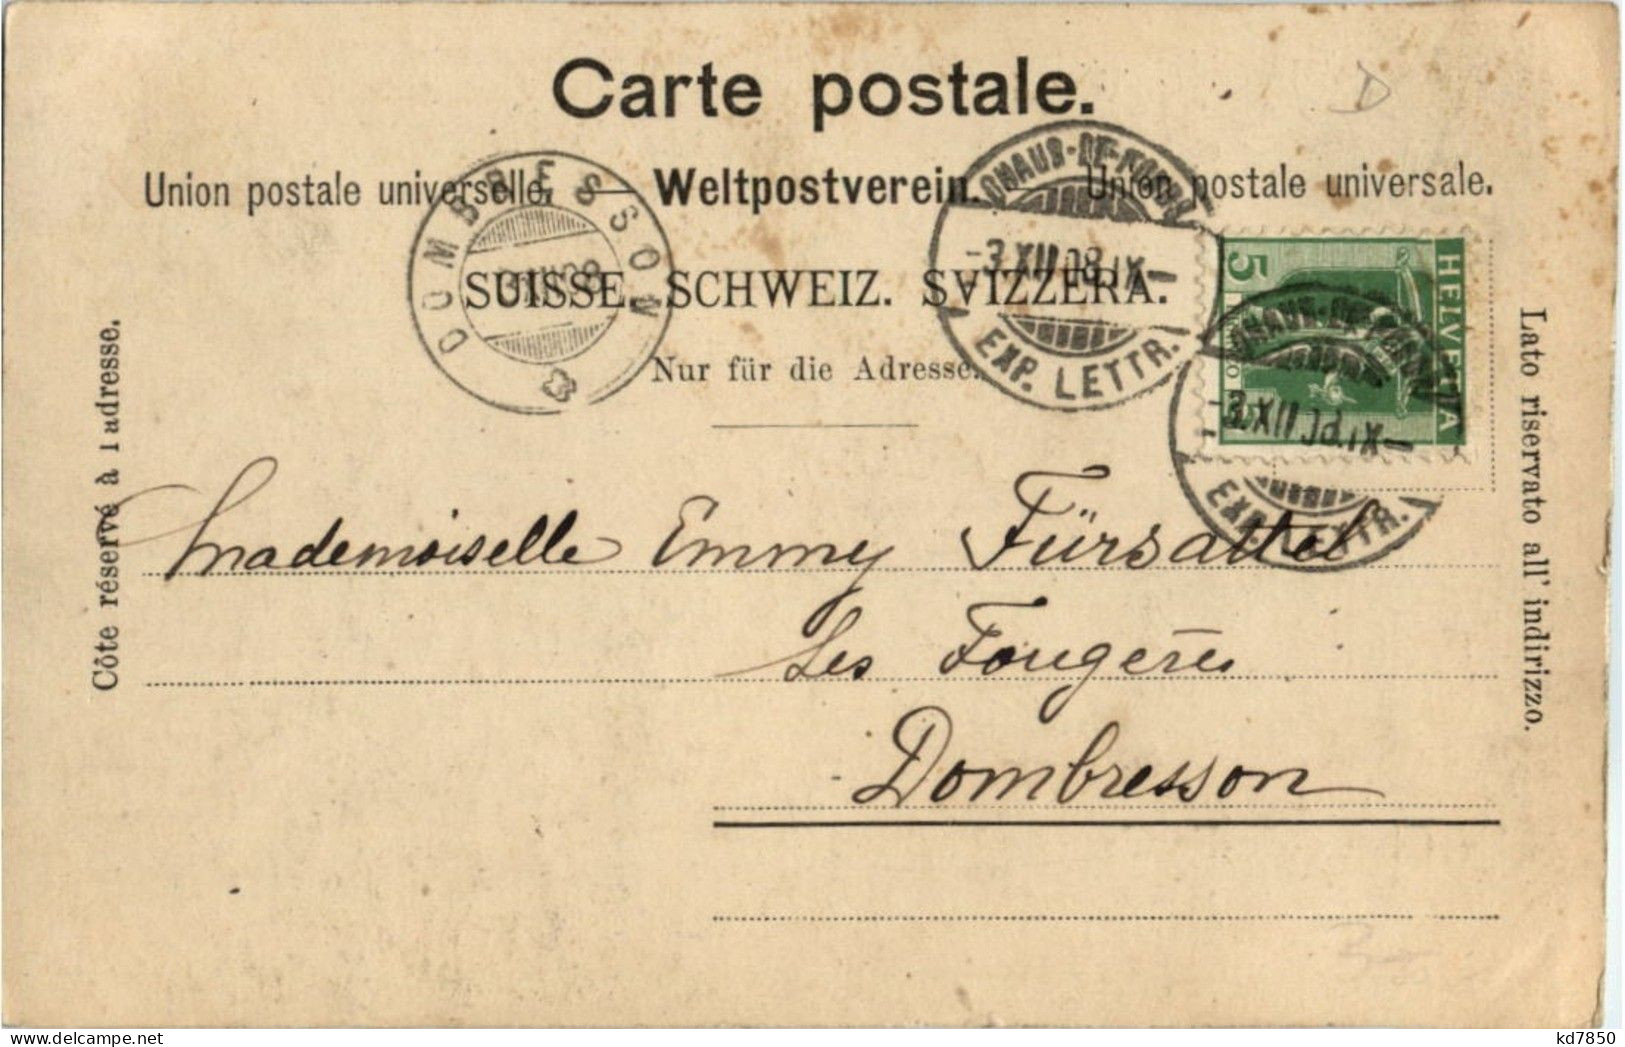 Carte postale.
D
Union postale universelle. Weltpostverein. Union postale universale.
SUISSE. SCHWEIZ. SVIZZERA.
Nur für die Adresse.
DOMBRESSON
CHAUX-DE-FONDS
-3.XII.08.IX-
EXP. LETTR.
HELVETIA
5
CHAUX-DE-FONDS
-3.XII.08.IX-
EXP. LETTR.
Côte réservé à l adresse.
Lato riservato all' indirizzo.
Mademoiselle Emmy Fürsattel
Les Fougères
Dombresson
kd7850